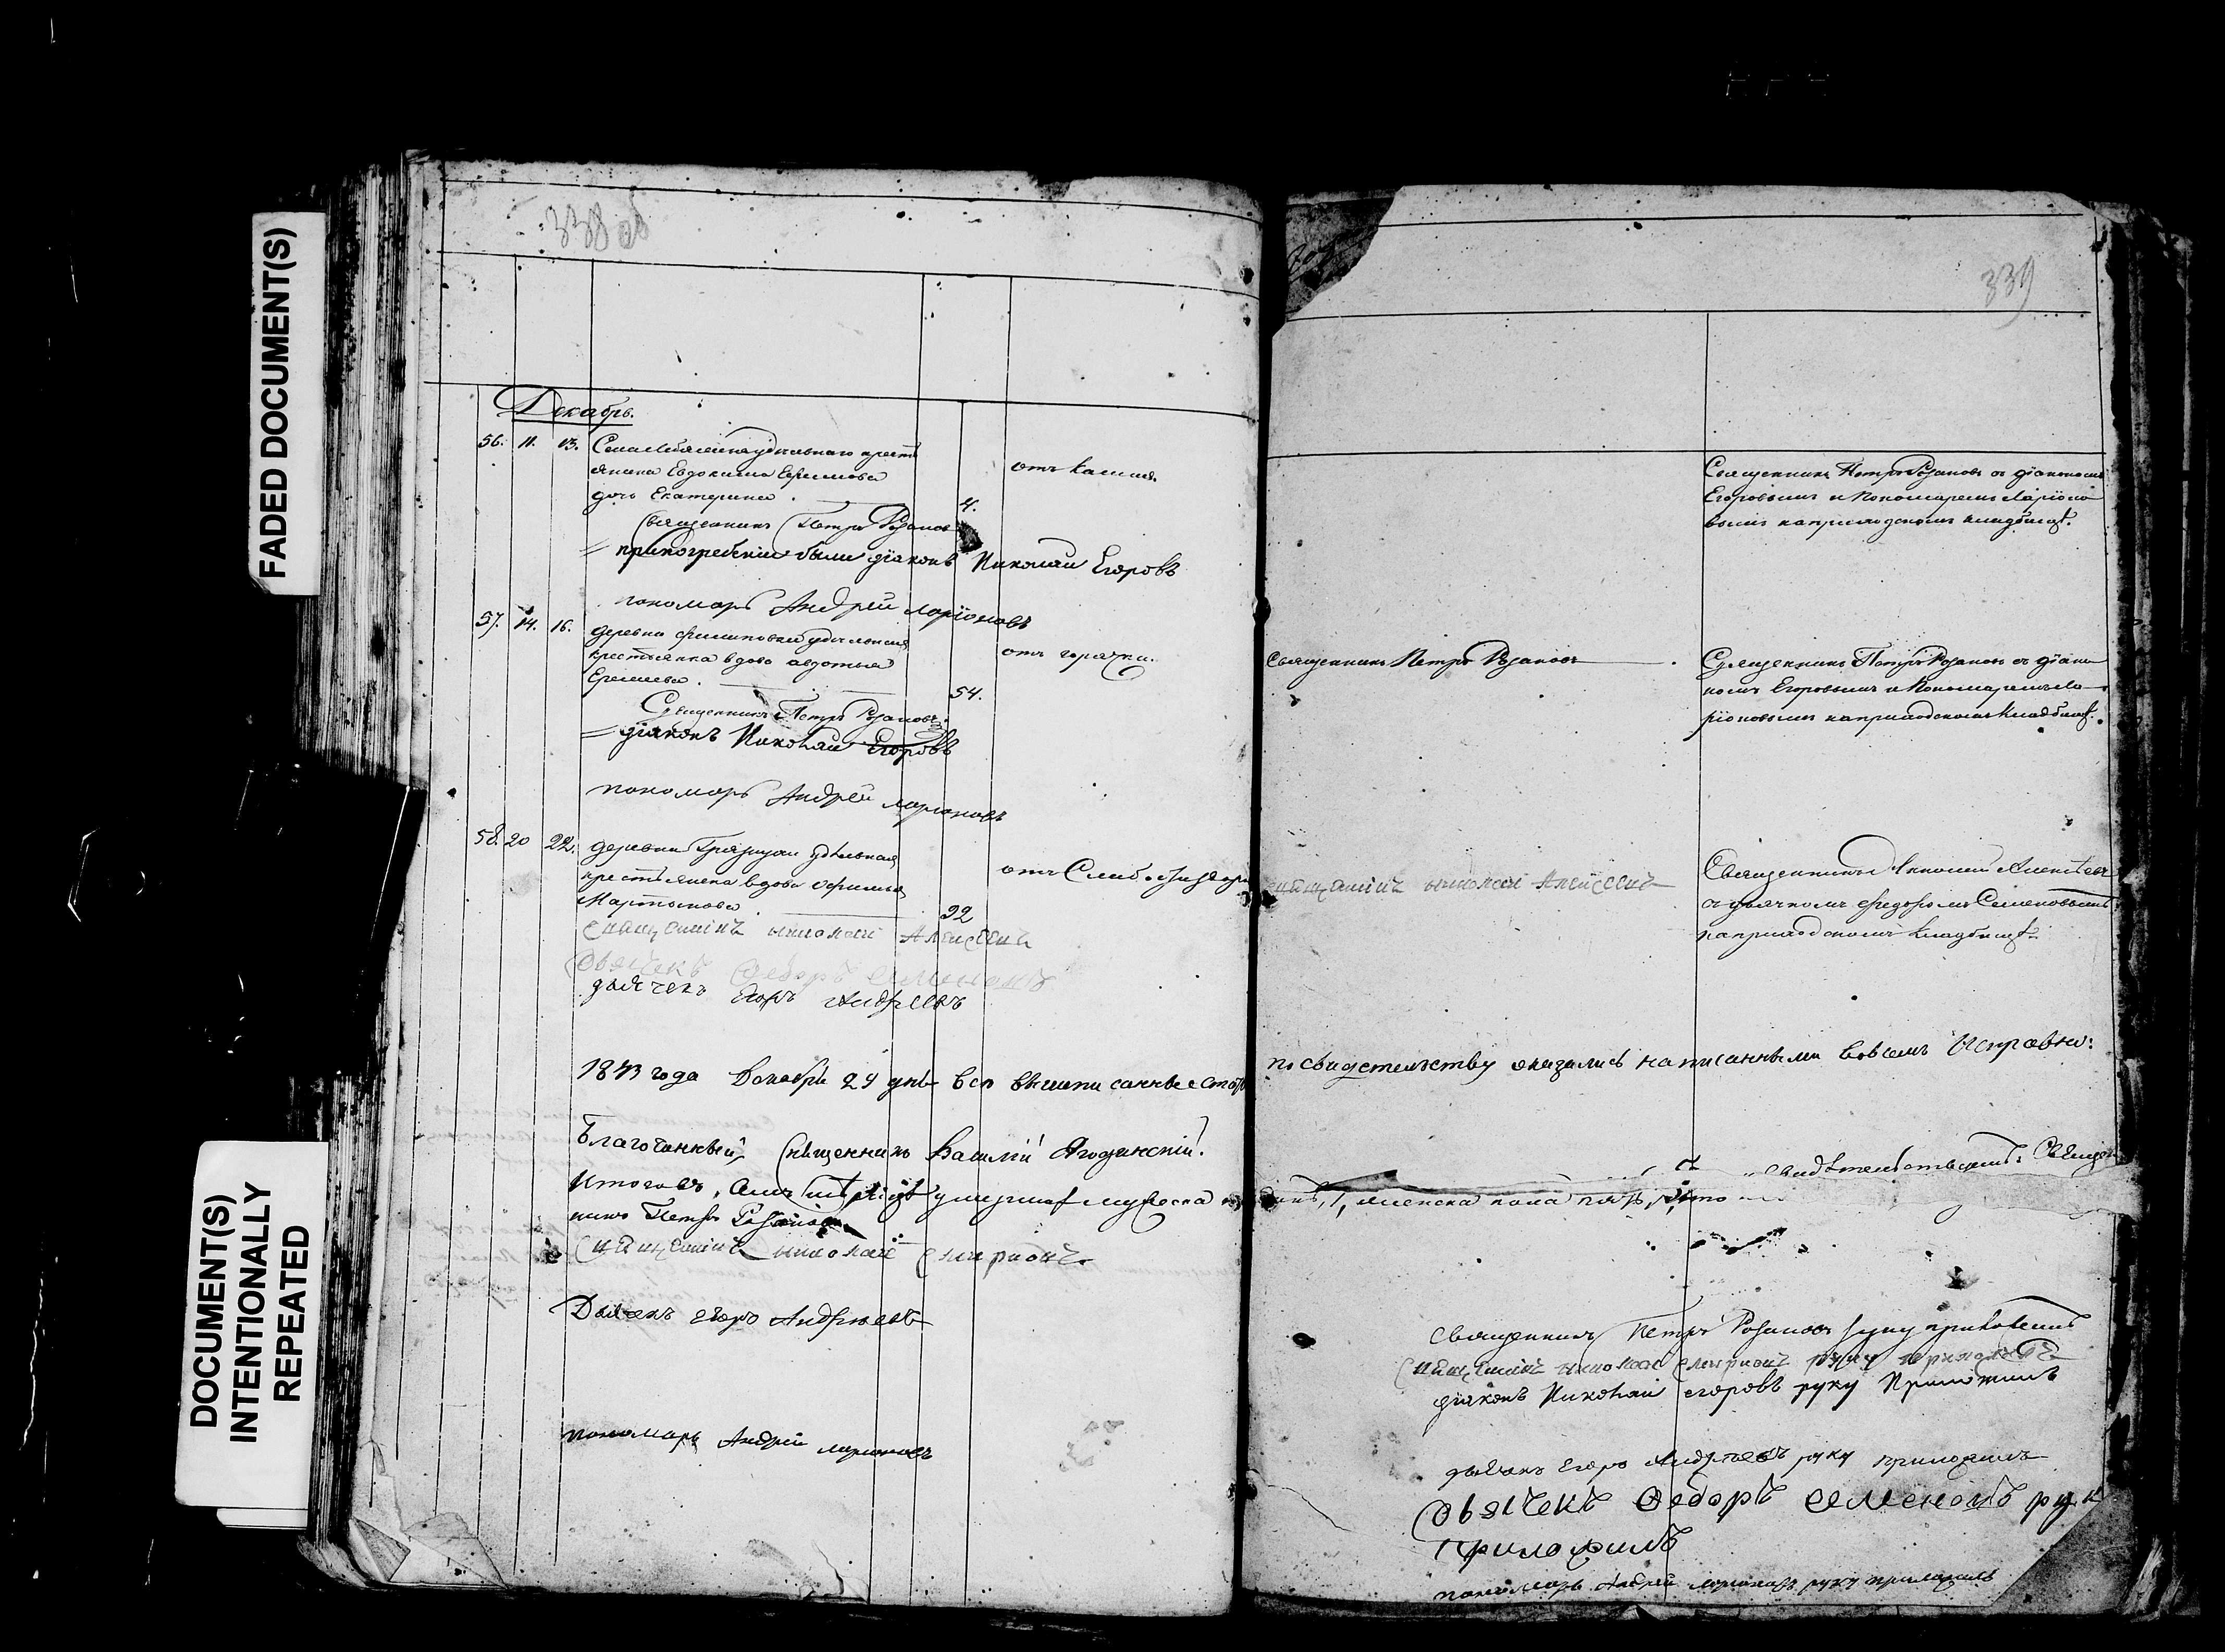 FADED DOCUMENT(S)
DOCUMENT(S)
INTENTIONALLY
REPEATED
338 об
Декабрь.
56. 11. 13. удѣльнаго кресть
янина Евдокима Ефимова
дочь Екатерина. 4. отъ кашля.
Священникъ Петръ Розановъ
при погребеніи были діаконъ Николай Егоровъ
пономарь Андрей Ларіоновъ
57. 14. 16. деревни удѣльная
крестьянка вдова авдотья
54. отъ горячки.
Священникъ Петръ Розановъ
діаконъ Николай Егоровъ
пономарь Андрей Ларионовъ
58. 20 22. деревни удѣльная
крестьянка вдова
Мартынова. 92 отъ
священникъ николай Алексеевъ
дьячекъ Федоръ семеновъ
дьячекъ Егоръ Андреевъ
1843 года Декабря 24 дня все вышеписанные
Благочинный, Священникъ Василій Ягодинскій.
Итого
никъ Петръ Розановъ
священникъ николай смирновъ
Дьячекъ егоръ Андреевъ
пономарь Андрей ларионовъ
339
Священникъ Петръ Розановъ съ діакономъ
Егоровымъ и Пономаремъ Ларіоно
вымъ на приходскомъ кладбищѣ.
Священникъ Петръ Розановъ
Священникъ Петръ Розановъ съ діако
номъ Егоровымъ и Пономаремъ Ла
ріоновымъ на приходскомъ кладбищѣ.
священникъ николай Алексеевъ
Священникъ Николай Алексѣевъ
съ дьячкомъ Федоромъ Семеновымъ
на приходскомъ кладбищѣ.
по свидетельству оказались написанными во всемъ Исправно.
женска пола
Священникъ Петръ Розановъ руку приложилъ
священникъ николай смирновъ руку приложилъ
діаконъ Николай егоровъ руку Приложилъ
дьячекъ Егоръ Андреевъ руку приложилъ
дьячекъ Федоръ семеновъ руку
приложилъ
пономарь Андрей ларионовъ руку приложилъ